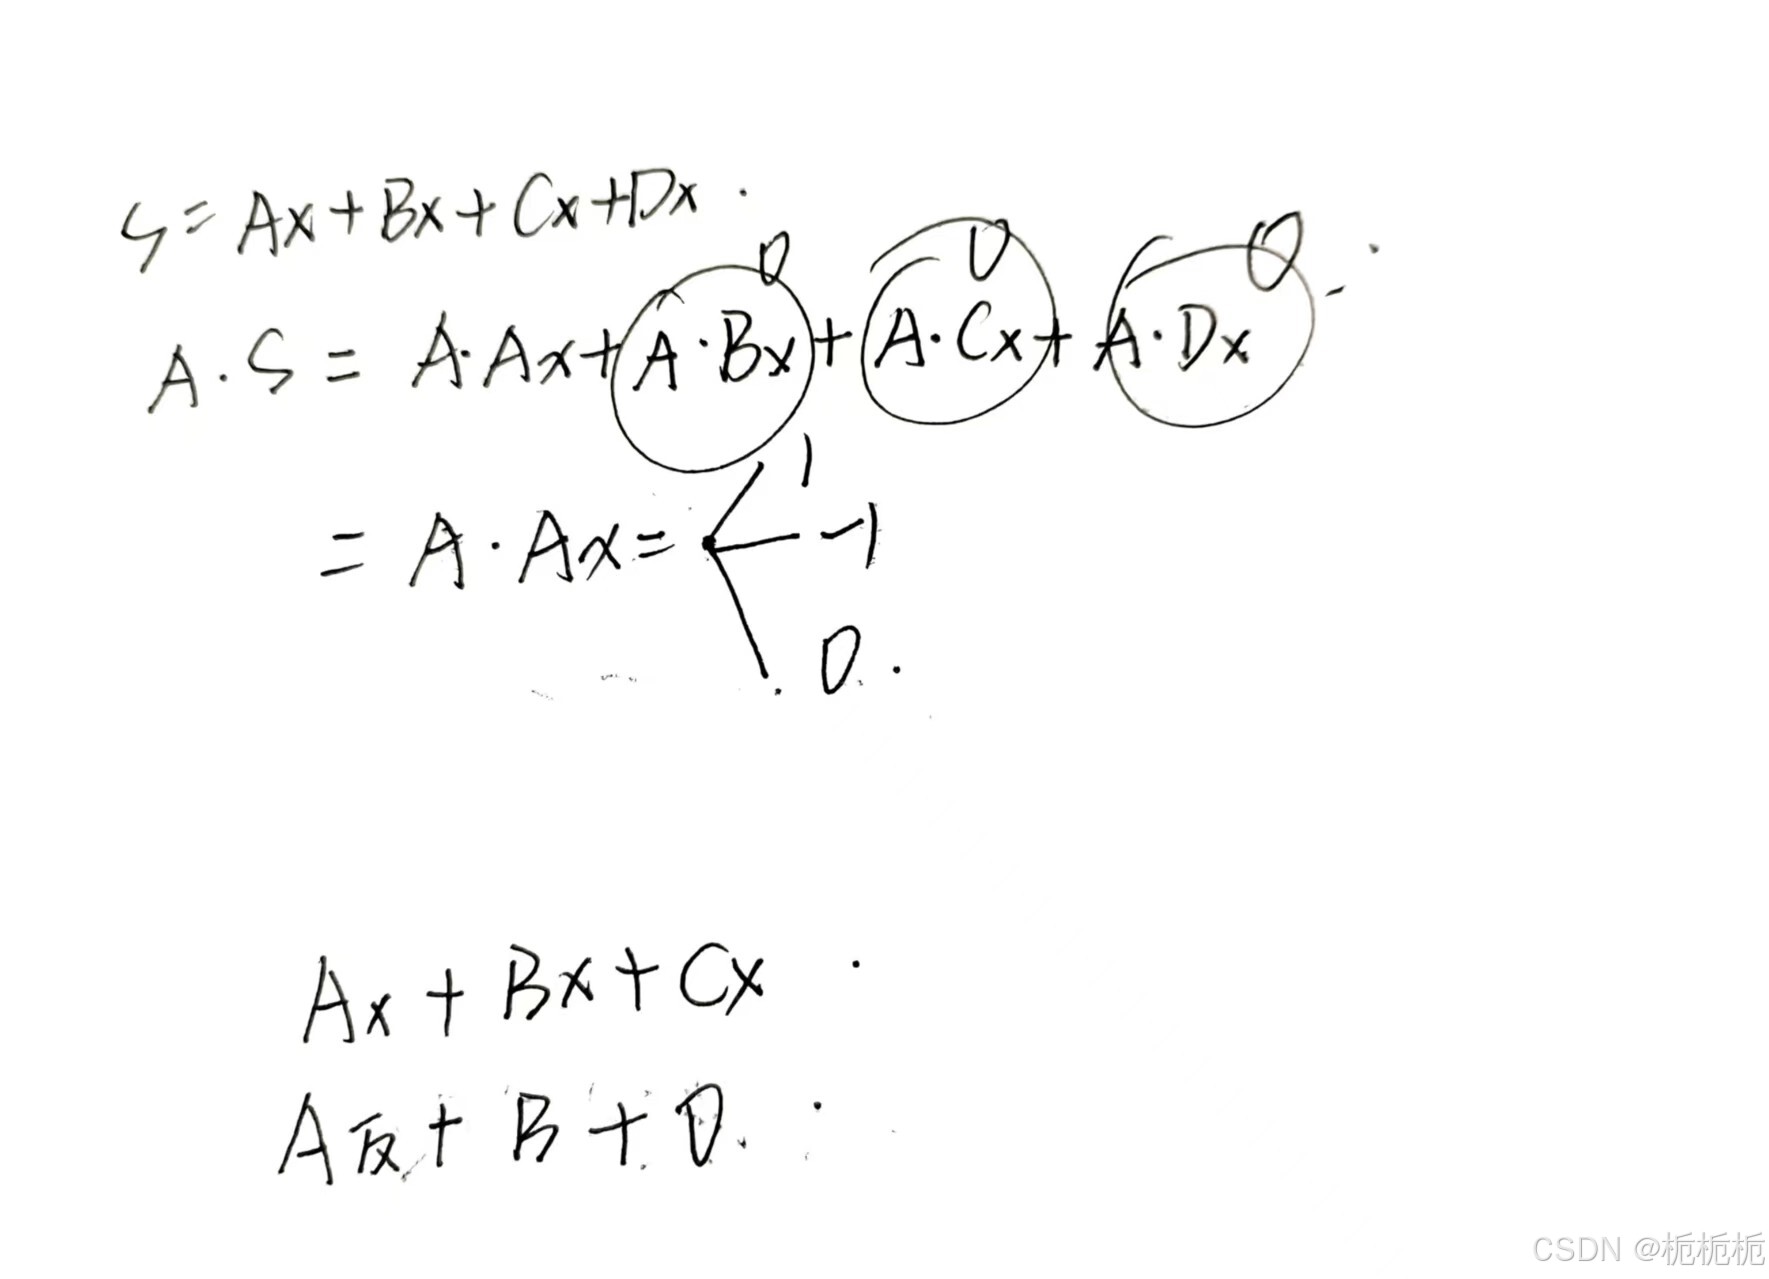 S=Ax+Bx+Cx+Dx.
0 0 0
A·S=A·Ax+A·Bx+A·Cx+A·Dx
1
=A·Ax= -1
0.
Ax+Bx+Cx
A反+B+0.
CSDN @栀栀栀